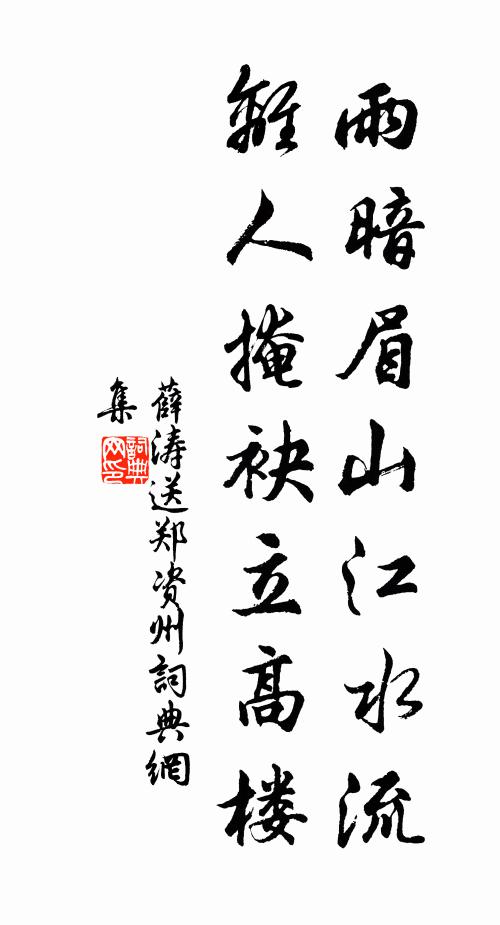 雨暗眉山江水流
離人掩袂立高楼
薛涛送郑资州詞典網
集
詞典
网印